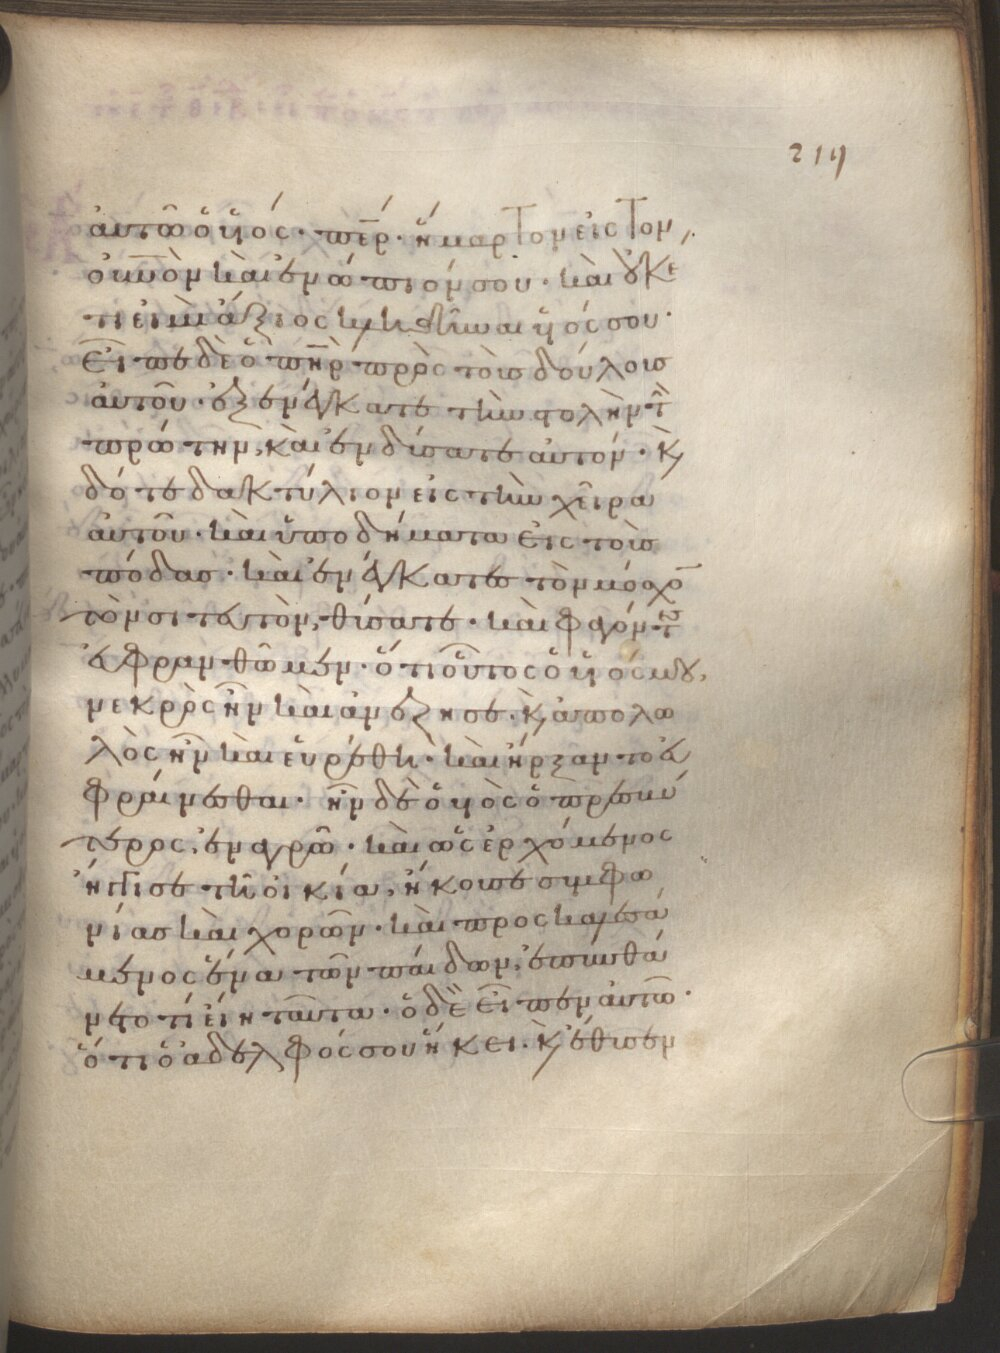 219
ἀυτῶ ὁ ὑιός· π̅ε̅ρ̅· ἥμαρτον εἰς τὸν
ο̅υ̅ν̅ὸν καὶ ἐνώπιόν σου· καὶ οὐκέ
τι εἰμὶ ἄξιος κληθῆναι ὑιός σου·
Εἶπε δὲ ὁ π̅η̅ρ̅ πρὸς τοὺς δούλους
ἀυτοῦ· ἐξενέγκατε τὴν στολὴν τὴ
πρώτην, καὶ ἐνδύσατε ἀυτόν· κ̀
δότε δακτύλιον εἰς τὴν χεῖρα
ἀυτοῦ· καὶ ὑποδήματα εἰς τοὺς
πόδας· καὶ ἐνέγκατες τὸν μόσχο̅
τὸν σιτευτὸν, θύσατε· καὶ φαγόντε
ἐυφρανθῶμεν· ὅτι οὗτος ὁ ὑιός μου,
νεκρὸς ἦν καὶ ἀνέζησε· κ̀ ἀπολω
λὸς ἦν καὶ εὑρέθη· καὶ ἤρξαντο ἐυ
φραίνεσθαι· ἦν δὲ ὁ ὑιὸς ὁ πρεσβύ
τερος, ἐν αγρῶ· καὶ ὡς ἐρχόμενος
ἤγγισε τῆ οἰκία, ἤκουσε συμφω
νίας καὶ χορῶν· καὶ προσκαλεσά
μενος ἕνα τῶν παίδων, ἐπυνθά
νετο τί εἴη ταῦτα· ὁ δὲ εἶπεν ἀυτῶ·
ὅτι ὁ αδελφός σου ἥκει· κ̀ ἔθυσεν